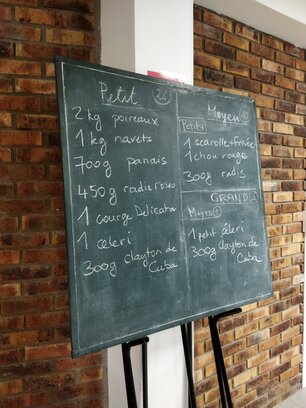 Petit 24
2 kg poireaux
1 kg navets
700g panais
450g radis roses
1 courge Delicata
1 celeri
300g clayton de
Cuba
Moyen 10
Petit +
1 scarolle - frisée
1 chou rouge
300g radis
GRAND
Moyen +
1 petit céleri
300g clayton de
Cuba